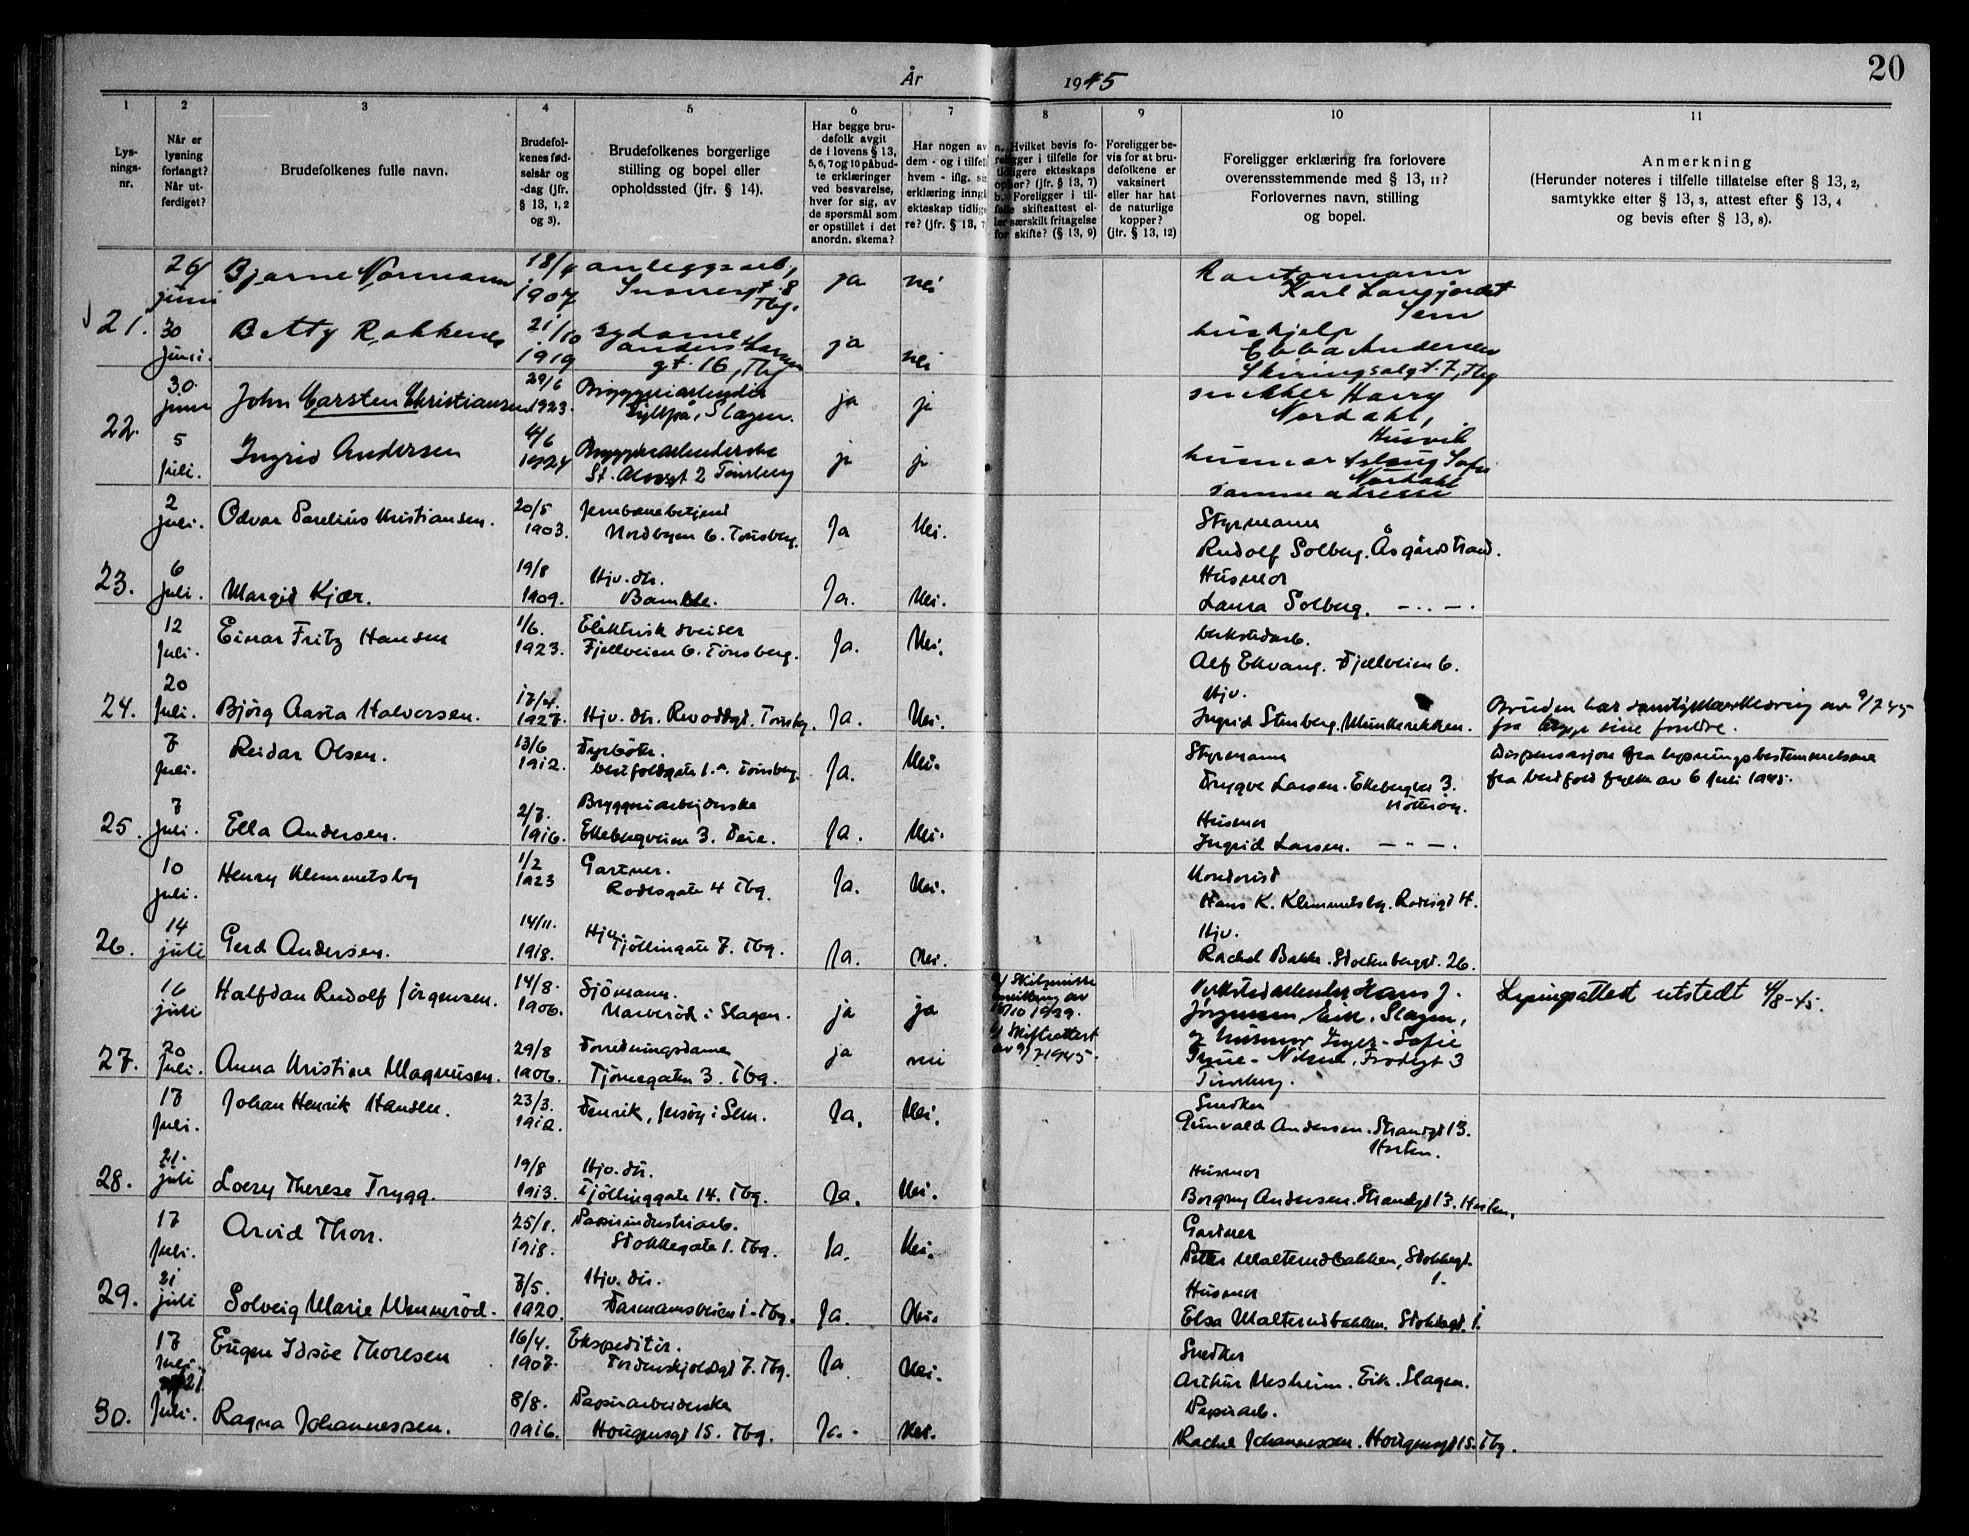 År 1945
20
1 2 3 4 5 6 7 8 9 10 11
Lysningsnr.
Når er lysning forlangt? Når utferdiget?
Brudefolkenes fulle navn.
Brudefolkenes fødselsår og -dag (jfr. § 13, 1, 2 og 3).
Brudefolkenes borgerlige stilling og bopel eller opholdssted (jfr. § 14).
Har begge brudefolk avgit de i lovens § 13, 5, 6, 7 og 10 påbudte erklæringer ved besvarelse, hver for sig, av de spørsmål som er opstillet i det anordn. skema?
Har nogen av dem - og i tilfell hvem - iflg. si erklæring inngå ekteskap tidlige re? (jfr. § 13, 7
a. Hvilket bevis foreligger i tilfelle for tidligere ekteskaps ophør? (jfr. § 13, 7) b. Foreligger i tilfelle skifteattest eller særskilt fritagelse for skifte? (§ 13, 9)
Foreligger bevis for at brudefolkene er vaksinert eller har hat de naturlige kopper? (jfr. § 13, 12)
Foreligger erklæring fra forlovere overensstemmende med § 13, 11? Forlovernes navn, stilling og bopel.
Anmerkning (Herunder noteres i tilfelle tillatelse efter § 13, 2, samtykke efter § 13, 3, attest efter § 13, 4 og bevis efter § 13, 8).
26/ juni Bjarne Normann 18/9 1907 anleggsarb, Snorresgt. 8 Tbg. ja nei
Kontormann
Karl Langjordet
Sem
21. 30 juni. Betty Rakkenes 21/10 1919 sydame Anders Larsen gt. 16, Tbg ja nei
hushjelp
Ebba Andersen
Skiringsalgt. 7, Tbg
30. juni John Carsten Christiansen 29/6 1923. Bryggeriarbeider Slagen. ja ja
snekker Harry
Nordahl,
Husvik
22. 5 juli. Ingrid Andersen 4/6 1924 Bryggeriarbeiderske St. Olavsgt 2 Tønsberg ja ja
husmor Aslaug Sofie
Nordahl
samme adresse
2 juli. Odvar Parelius Kristiansen. 20/5 1903. Jernbanebetjent Nordbyen 6. Tønsberg. Ja Nei.
Styrmann
Rudolf Solberg. Åsgårdstrand.
23. 6 juli. Margit Kjær. 19/8 1909. Hjv. dtr. Bamble. Ja. Nei.
Husmor
Laura Solberg. — .. — .
12 Juli. Einar Fritz Hansen 1/6. 1923. Elektrisk sveiser Fjellveien 6. Tønsberg. Ja. Nei.
Verkstedarb.
Alf Ekvang. Fjellveien 6.
24. 20 Juli. Bjørg Aasta Halvorsen. 17/4. 1927. Hjv. dtr. Tønsbg. Ja. Nei.
Hjv.
Ingrid Stenberg, Munkerekken.
Bruden har samtykkeerklæring av 9/7 45
fra begge sine foreldre.
7 Juli. Reidar Olsen. 13/6 1912. Fyrbøter. Vestfoldgate 1.a. Tønsberg. Ja. Nei.
Styrmann
Trygve Larsen. Ekebergvn 3.
Nøtterøy.
Dispensasjon fra lysningsbestemmelsene
fra Vestfold fylke av 6 Juli 1945.
25. 7 Juli. Ella Andersen. 2/7. 1916. Bryggeriarbeiderske Ekebergveien 3. Teie. Ja. Nei.
Husmor
Ingrid Larsen. — " — .
10 Juli. Henry Klemmetsby 1/2 1923 Gartner. Rodesgate 4 Tbg. Ja. Nei.
Konditor
Hans K. Klemmetsby. Rodesgt 4.
26. 14 juli Gerd Andersen. 14/11. 1918. Hjv. Tjøllinggate 7. Tbg. Ja. Nei.
Hjv.
Rachel Bakke. Stoltenbergst. 26.
16 juli Halfdan Rudolf Jørgensen. 14/8. 1906. Sjømann. Narverød i Slagen. ja ja
a/ Skilsmisse bevilling av 15/10 1929.
b/ Skifteattest av 9/7 1945.
Verkstedarbeider Hans J.
Jørgensen, Eik. Slagen,
og husmor Inger-Sofie
Nilsen, Frodegt 3
Tønsberg.
Lysningsattest utstedt 4/8-45.
27. 20 Juli. Anna Kristine Magnussen. 29/8 1906. Forretningsdame Tjømegaten 3. Tbg. ja nei
17 Juli. Johan Henrik Hansen. 23/3. 1912. Fenrik, Jersøy i Sem. Ja. Nei.
Snedker
Gunvald Andersen. Strandgt 13.
Horten.
28. 21. juli Loery Therese Trygg. 19/8 1913. Hjv. dtr. Tjøllinggate 14. Tbg. Ja. Nei.
Husmor
Borgny Andersen. Strandgt 13. Horten.
17 Juli. Arvid Thon. 25/1. 1918. Papirindustriarb. Stokkegate 1. Tbg. Ja. Nei.
Gartner
Petter Malterudbakken, Stokkegt.
1.
29. 21 juli Solveig Marie Wennerød. 7/5. 1920. Hjv. dtr. Farmannsveien 1. Tbg. Ja. Nei.
Husmor
Elsa Malterudbakken. Stokkegt. 1.
17 Juli. 21 Eugen Idsøe Thoresen 16/4. 1907. Ekspeditør. Tordenskjoldsgt 7. Tbg. Ja Nei.
Snedker
Arthur Nesheim. Eik. Slagen.
30. Juli. Ragna Johannessen. 8/8. 1916. Papirarbeiderske Hougensgt 15. Tbg. Ja. Nei.
Papirarb.
Rachel Johannessen. Hougensgt 15. Tbg.